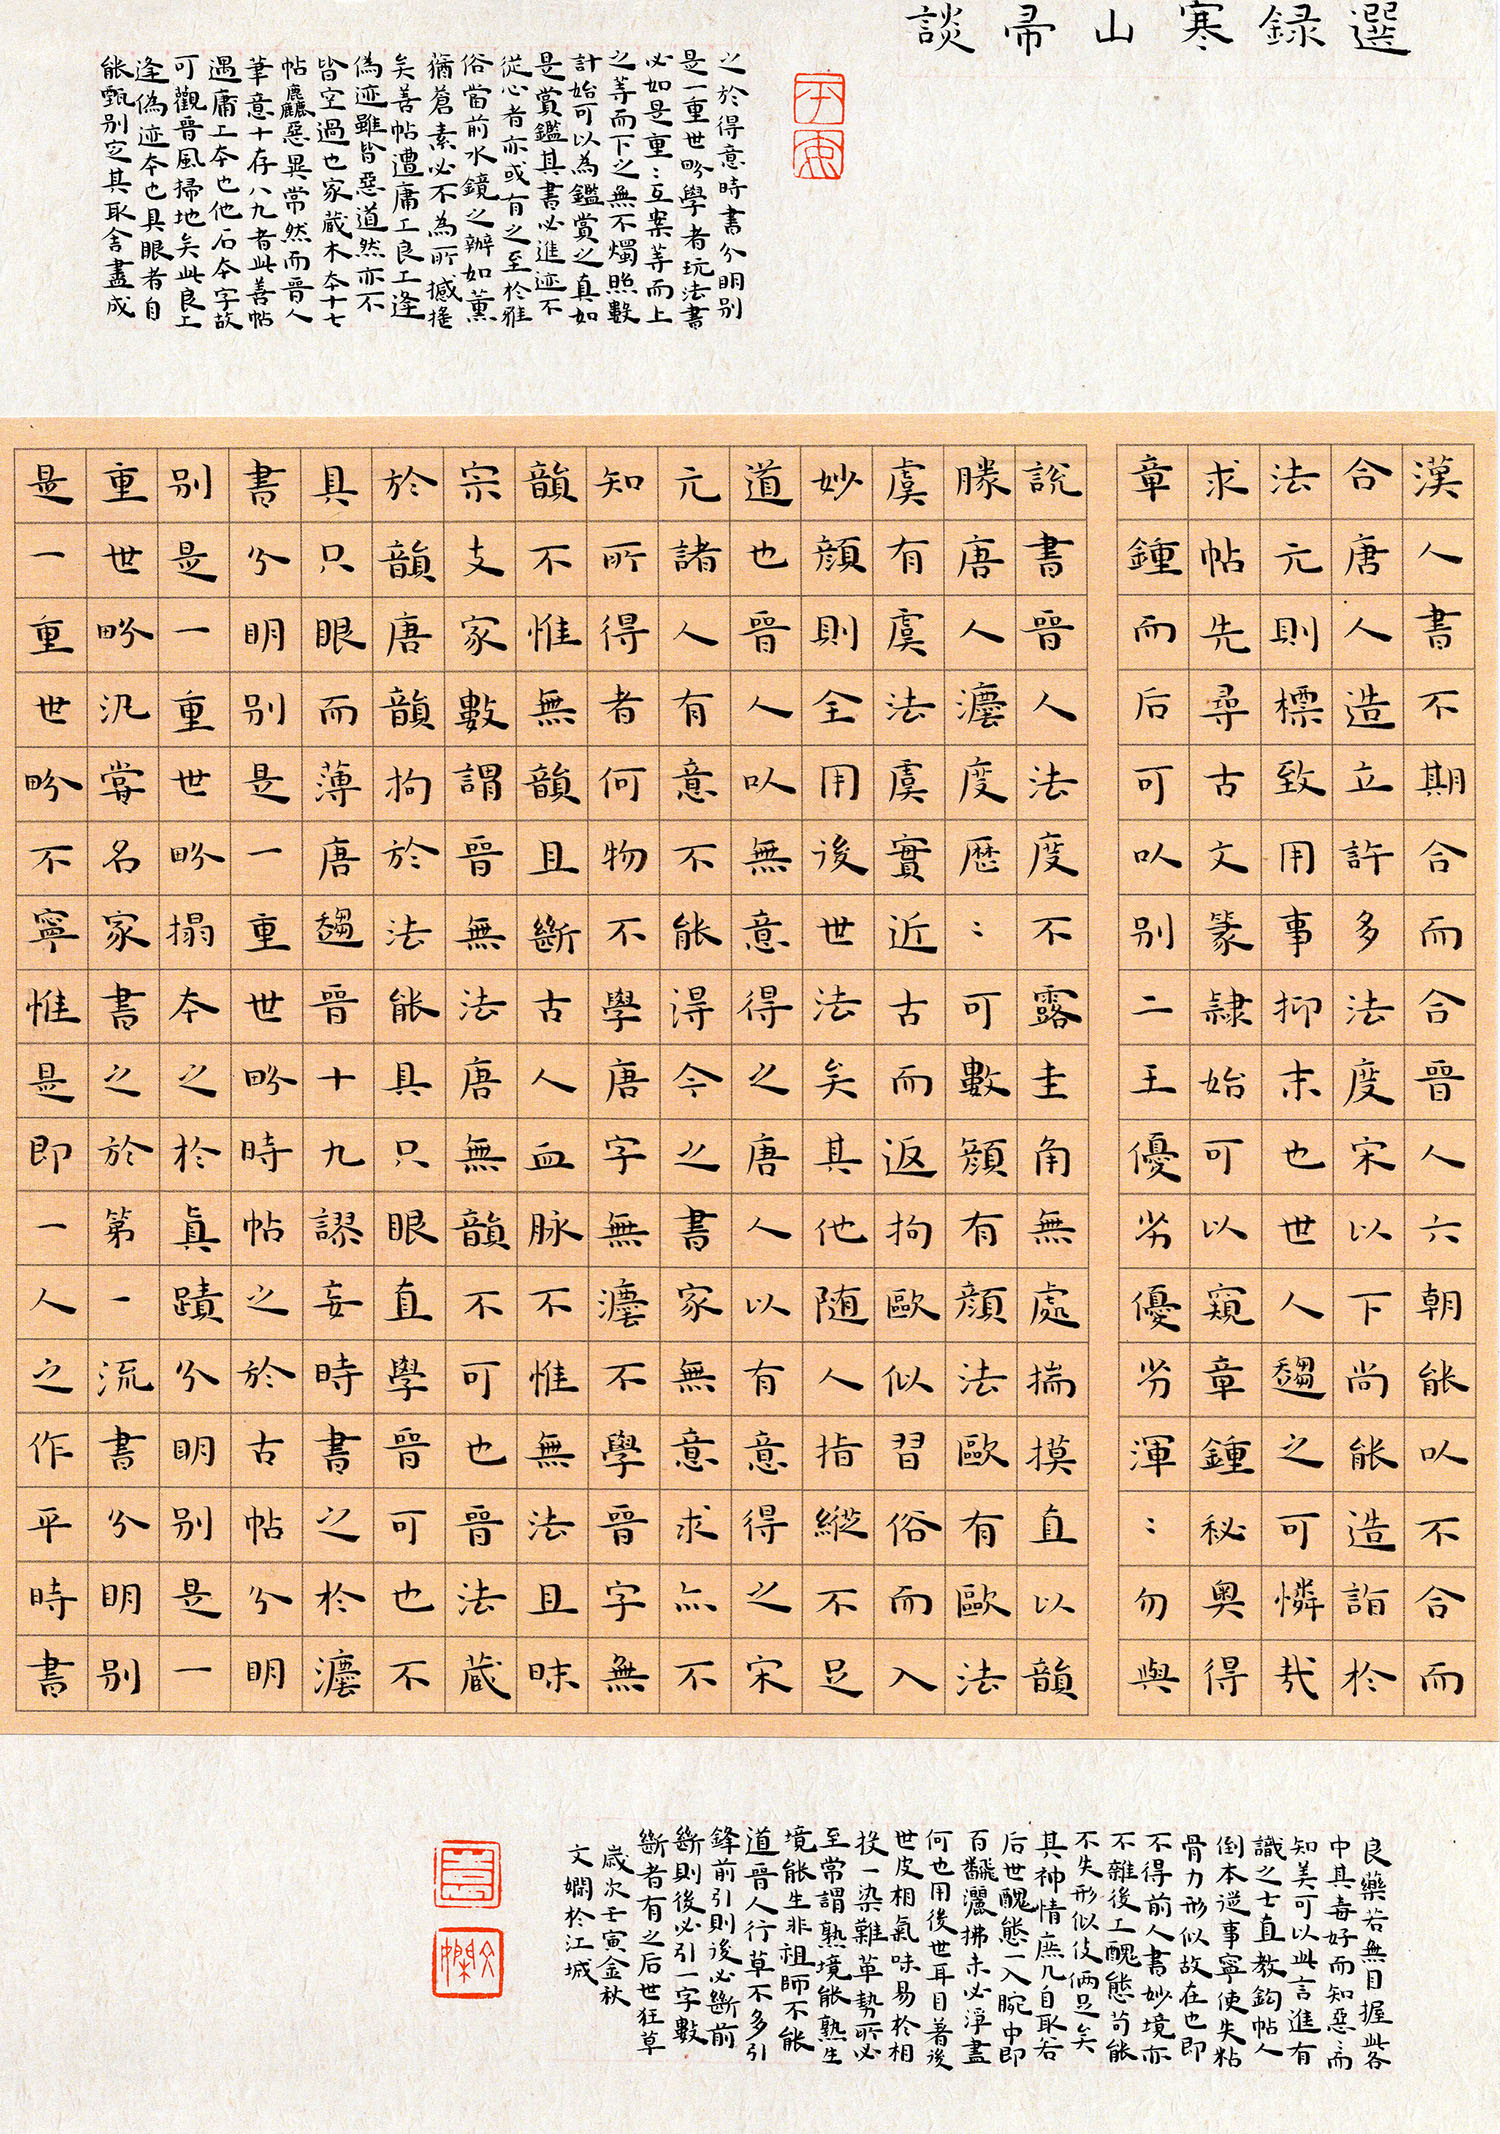 選録寒山帚談
漢人書不期合而合晉人六朝能以不合而
合唐人造立許多法度宋以下尚能造詣於
法元則標致用事抑末也世人趨之可憐哉
求帖先尋古文篆隸始可以窺章鍾秘奧得
章鍾而后可以別二王優劣優劣渾:勿與
說書晉人法度不露圭角無處揣摸直以韻
勝唐人瀍度歷:可數顏有顏法歐有歐法
虞有虞法虞實近古而返拘歐似習俗而入
妙顏則全用後世法矣其他随人指縱不足
道也晉人以無意得之唐人以有意得之宋
元諸人有意不能得今之書家無意求亦不
知所得者何物不學唐字無瀍不學晉字無
韻不惟無韻且斷古人血脉不惟無法且昧
宗支家數謂晉無法唐無韻不可也晉法藏
於韻唐韻拘於法能具只眼直學晉可也不
具只眼而薄唐趨晉十九謬妄時書之於瀍
書分明別是一重世畛時帖之於古帖分明
別是一重世畛搨本之於真蹟分明別是一
重世畛汎嘗名家書之於第一流書分明別
是一重世畛不寧惟是即一人之作平時書
之於得意時書分明別
是一重世畛學者玩法書
必如是重:互案等而上
之等而下之無不燭照數
計始可以為鑑賞之真如
是賞鑑其書必進迹不
從心者亦或有之至於雅
俗當前水鏡之辦如薰
蕕蒼素必不為所撼搖
矣善帖遭庸工良工逢
偽迹雖皆惡道然亦不
皆空過也家藏木本十七
帖麤惡異常然而晉人
筆意十存八九者此善帖
遇庸工本也他石本字故
可觀晉風掃地矣此良工
逢偽迹本也具眼者自
能甄別定其取舍盡成
良藥若無目握此各
中其毒好而知惡:而
知美可以此言進有
識之士直教鈎帖人
倒本逆事寧使失粘
骨力形似故在也即
不得前人書妙境亦
不雜後工醜態苟能
不失形似伎倆足矣
其神情庶几自取若
后世醜態一入腕中即
百飜灑拂未必淨盡
何也用後世耳目著後
世皮相氣味易於相
投一染難革勢所必
至常謂熟境能熟生
境能生非祖師不能
道晉人行草不多引
鋒前引則後必斷前
斷則後必引一字數
斷者有之后世狂草
歲次壬寅金秋
文嫻於江城